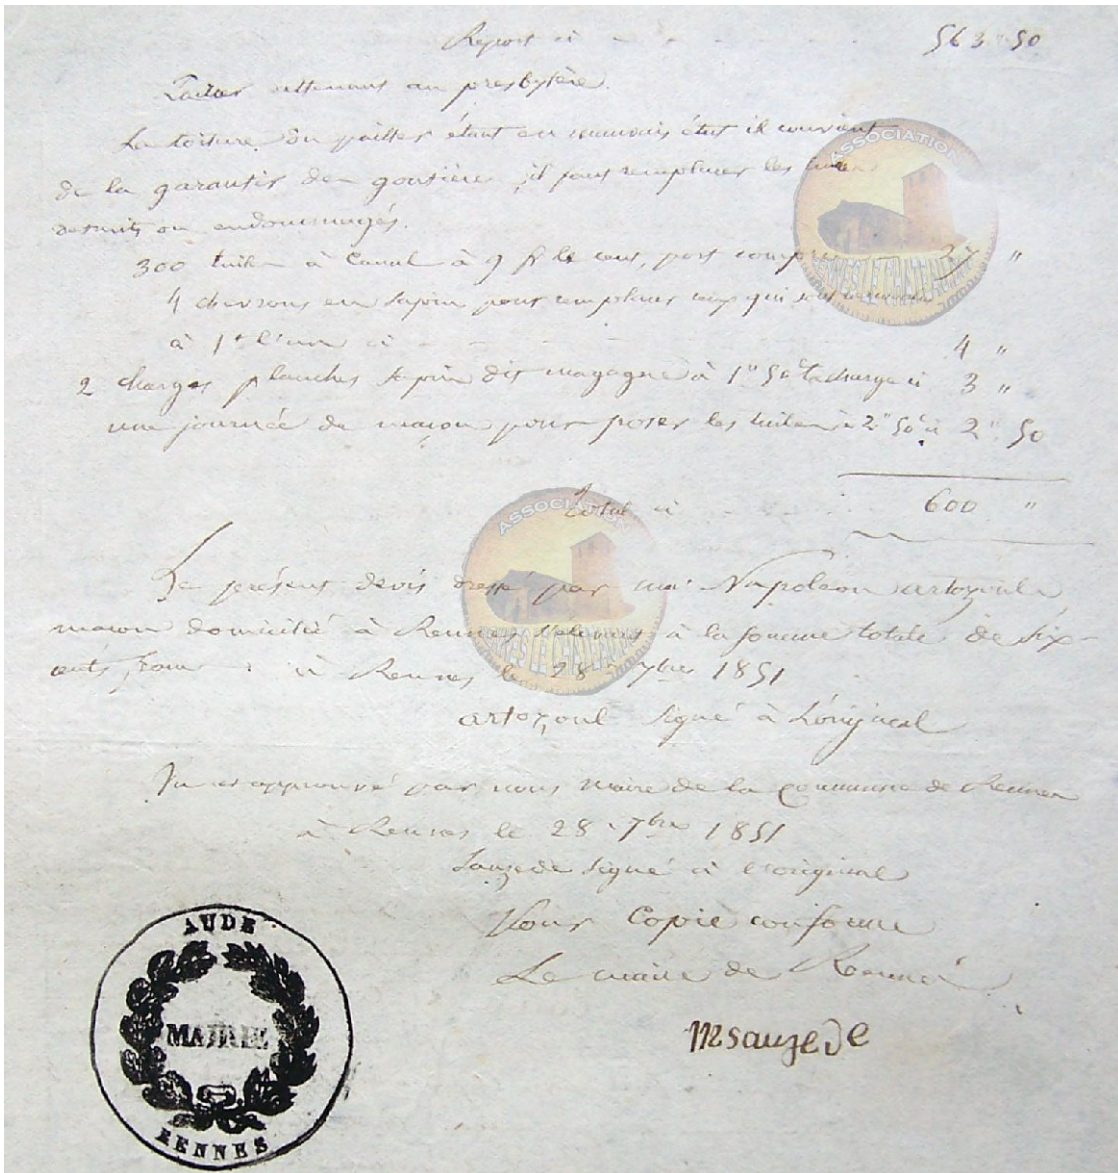 Report ci 563 " 50
attenant au presbytère.
La toiture du pailler étant en mauvais état il convient
de la garantir de goutière, il faut remplacer les tuiles
détruits ou endommagés.
300 tuiles à Canal à 9 f le cent, port compris "
4 chevrons en sapin pour remplacer ceux qui sont
à 1 f l'un ci 4 "
2 charges planches sapin dit magagne à 1 " 50 la charge ci 3 "
une journée de maçon pour poser les tuiles à 2 " 50 ci 2 " 50
Total ci 600 "
Le présent devis dressé par moi Napoleon artozoul
maçon domicilié à Rennes à la somme totale de Six
cents francs à Rennes le 28 7bre 1851
artozoul signé à L'original
Vu et approuvé par nous maire de la commune de Rennes
à Rennes le 28 7bre 1851
Sauzede signé à l'original
Pour Copie conforme
Le maire de Rennes
Msauzede
AUDE
MAIRIE
RENNES
ASSOCIATION
RENNES LE CHATEAU
ASSOCIATION
RENNES LE CHATEAU